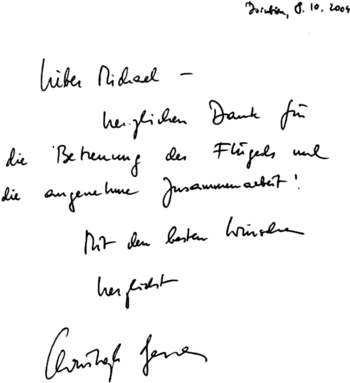 8.10.2004
Lieber Michael –
herzlichen Dank für
die Betreuung des Flügels und
die angenehme Zusammenarbeit!
Mit den besten Wünschen
herzlichst
Christoph